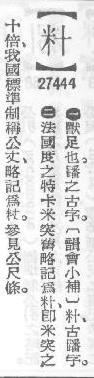 【籵】
27444
㊀獸足也。蹯之古字。〔韻會小補〕籵古蹯字。
㊁法國度之特卡米突舊略記爲籵。卽米突之
十倍。我國標準制稱公丈。略記爲杖。參見公尺條。